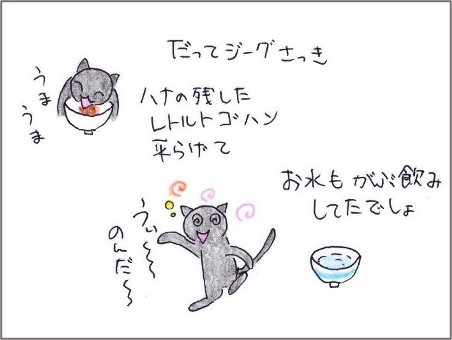 だってジーグさっき
うま
うま
ハナの残した
レトルトゴハン
平らげて
お水もがぶ飲み
してたでしょ
うぃ〜〜
のんだ〜